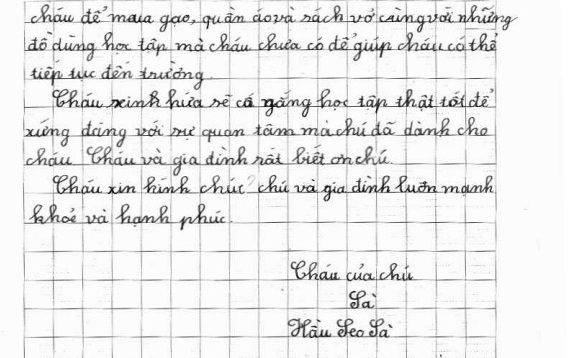 cháu để maua gạo, quần áo và sách vở cùng với những
đồ dùng học tập mà cháu chưa có để giúp cháu có thể
tiếp tục đến trường.
Cháu xinh hứa sẽ cố gắng học tập thật tốt để
xứng đáng với sự quan tâm mà chú đã dành cho
cháu Cháu và gia đình rất biết ơn chú.
Cháu xin kính chúc chú và gia đình luôn mạnh
khoẻ và hạnh phúc.
Cháu của chú
Sà
Hầu Seo Sà